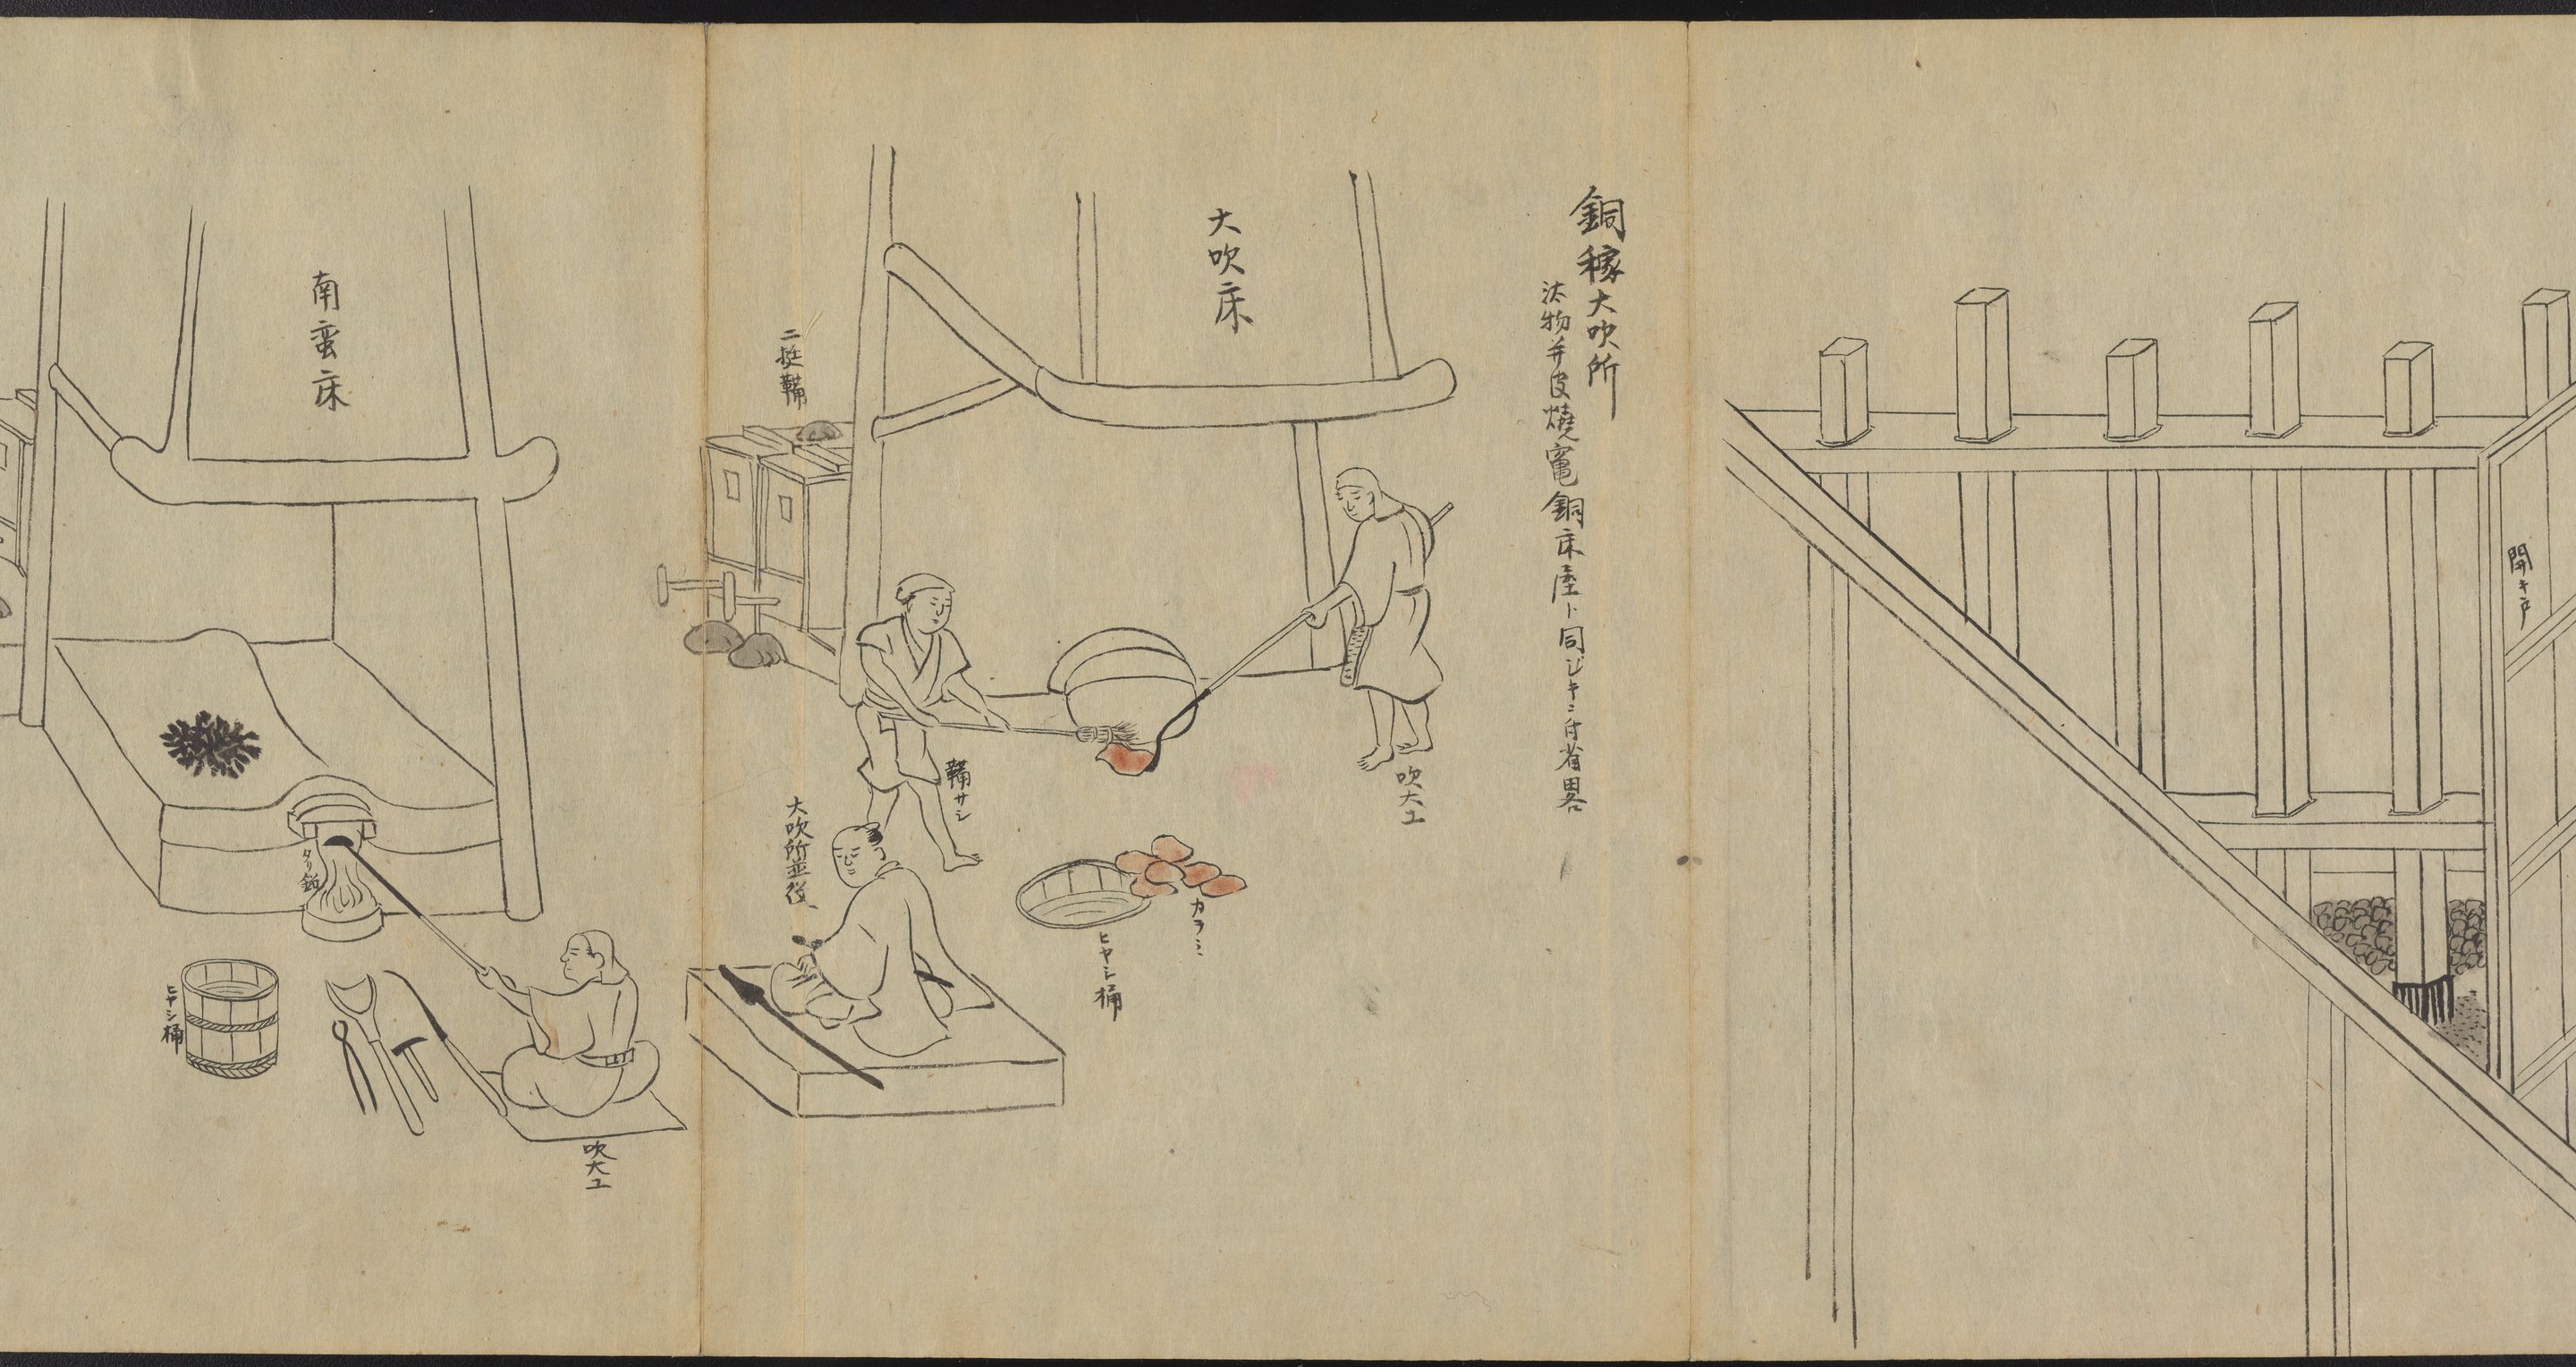 開キ戸
銅稼大吹所
汰物并皮燒竃銅床屋ト同ジキニ付省畧
大吹床
吹大工
カラミ
ヒヤシ桶
鞴サシ
二挺鞴
大吹所並役
南蛮床
吹大工
タリ鉛
ヒヤシ桶